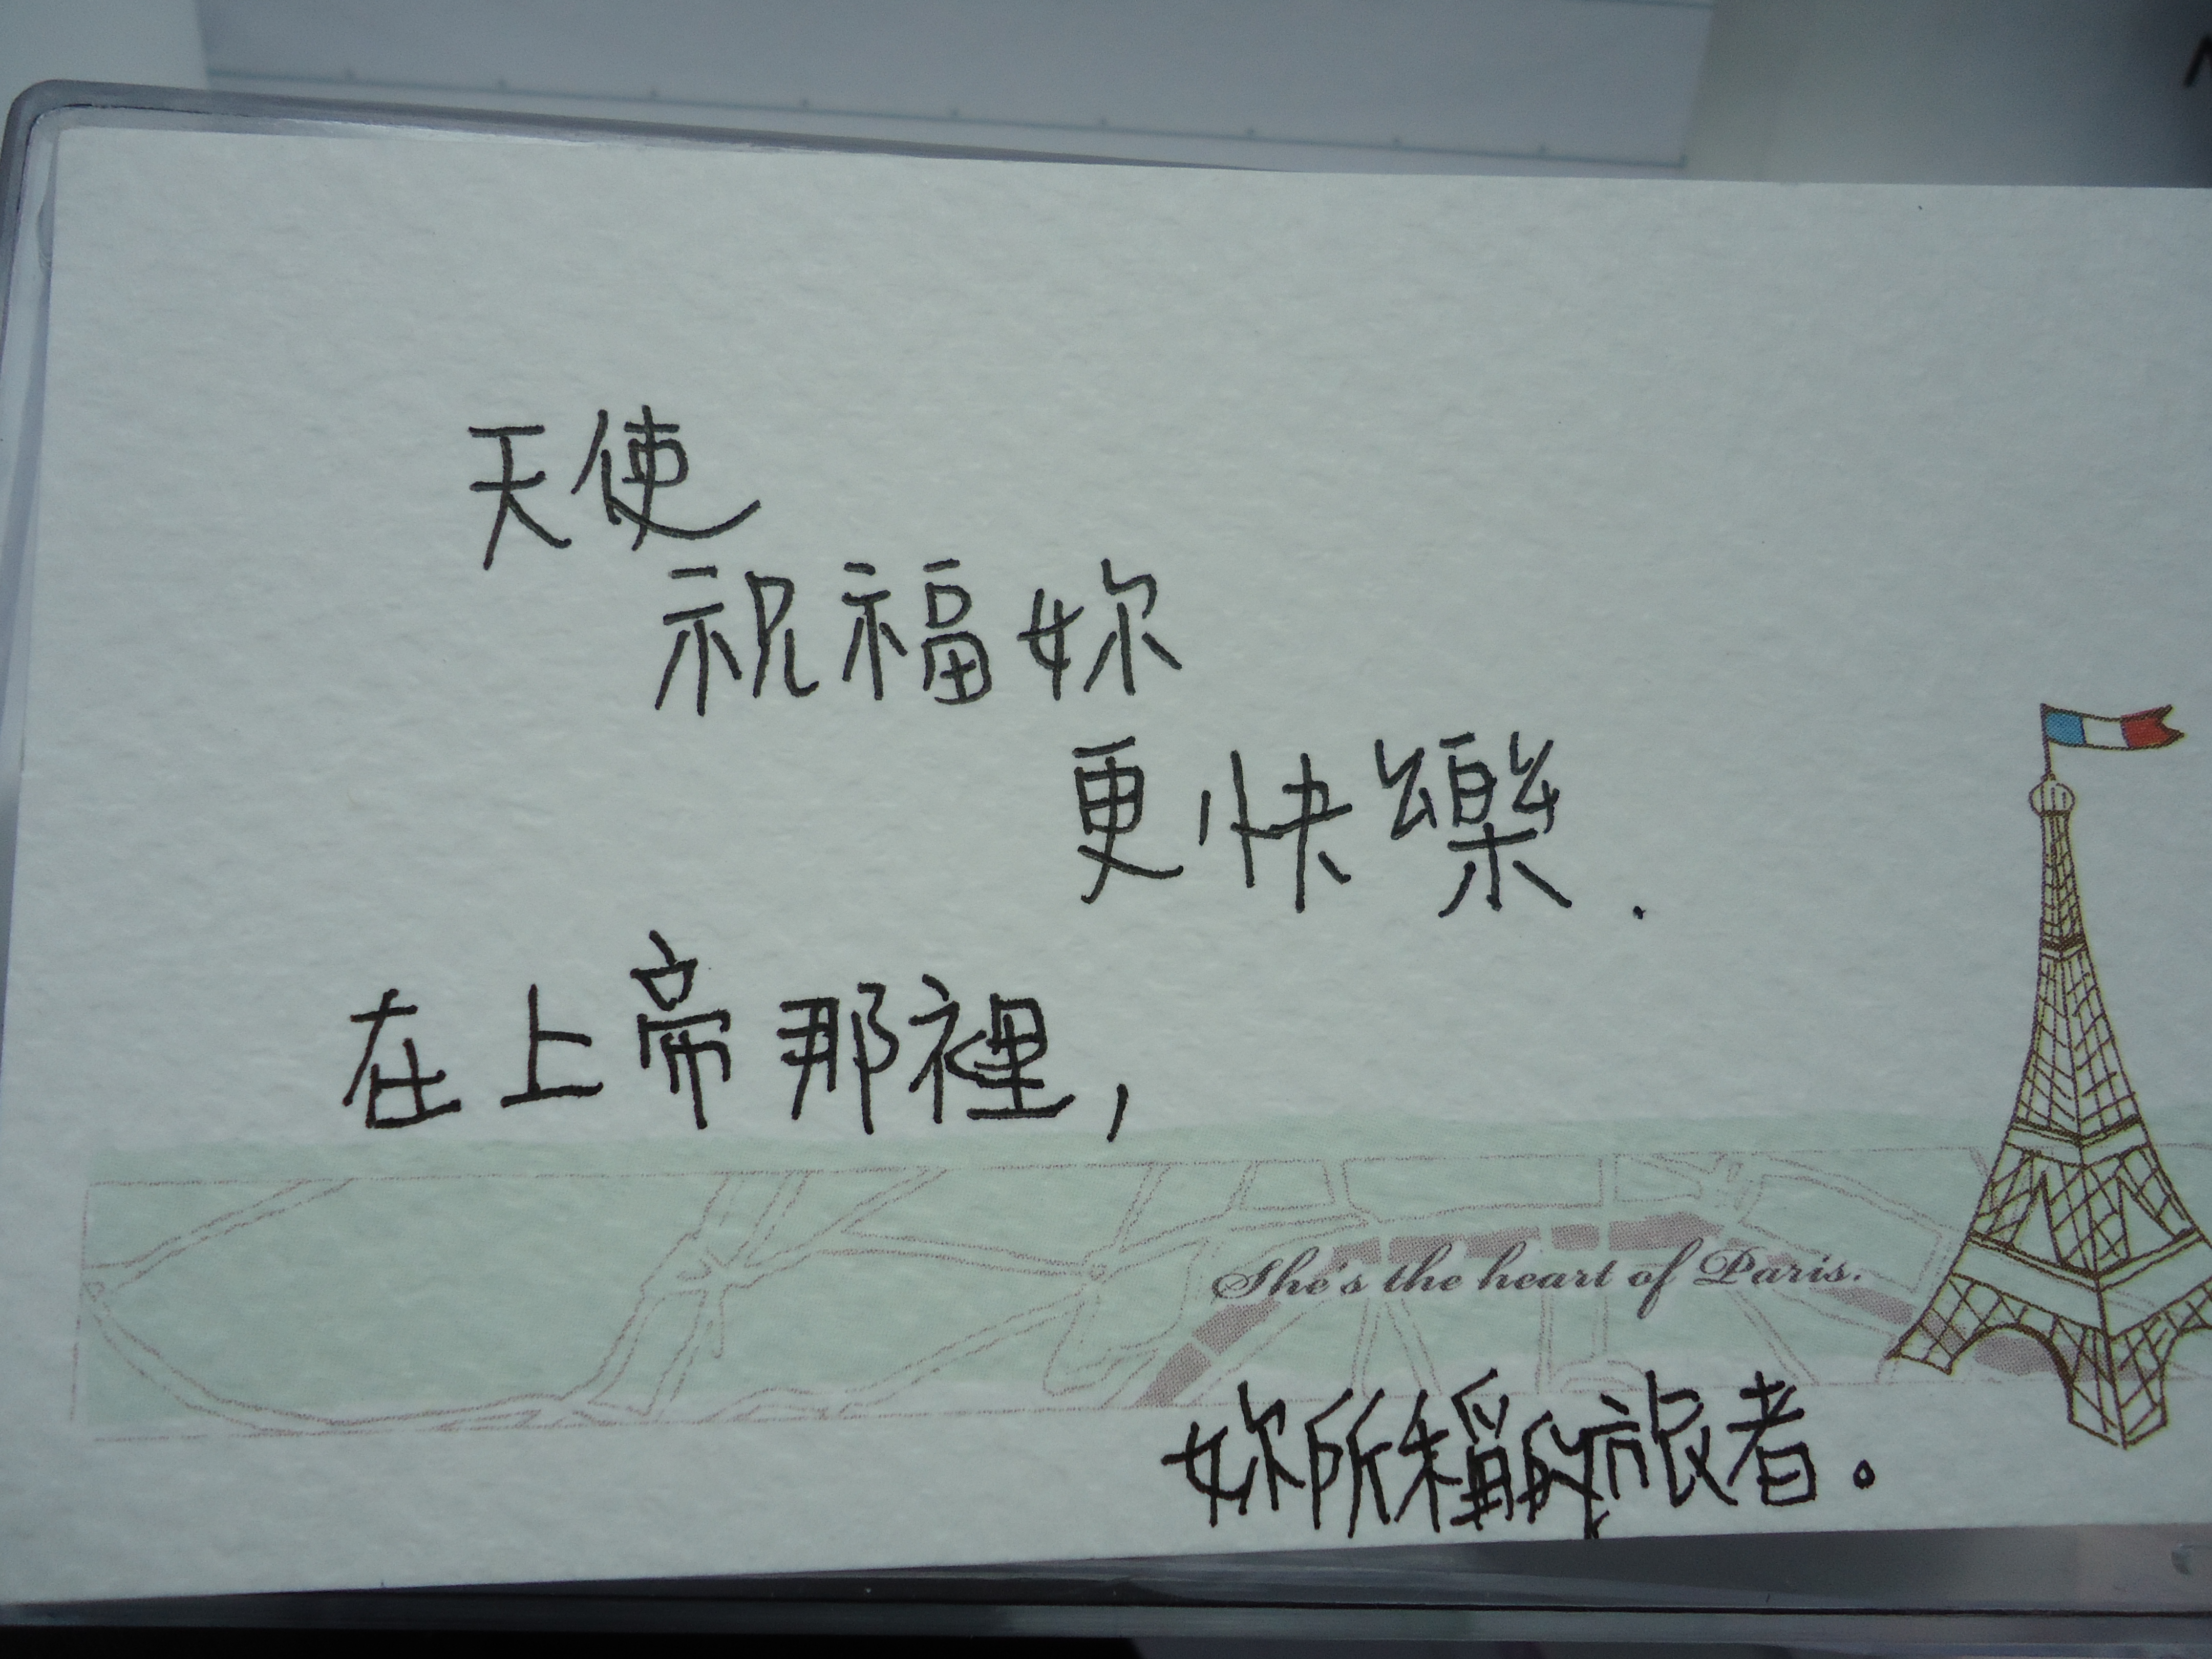 天使
祝福妳
更快樂.
在上帝那裡,
She's the heart of Paris.
妳所稱的旅者。